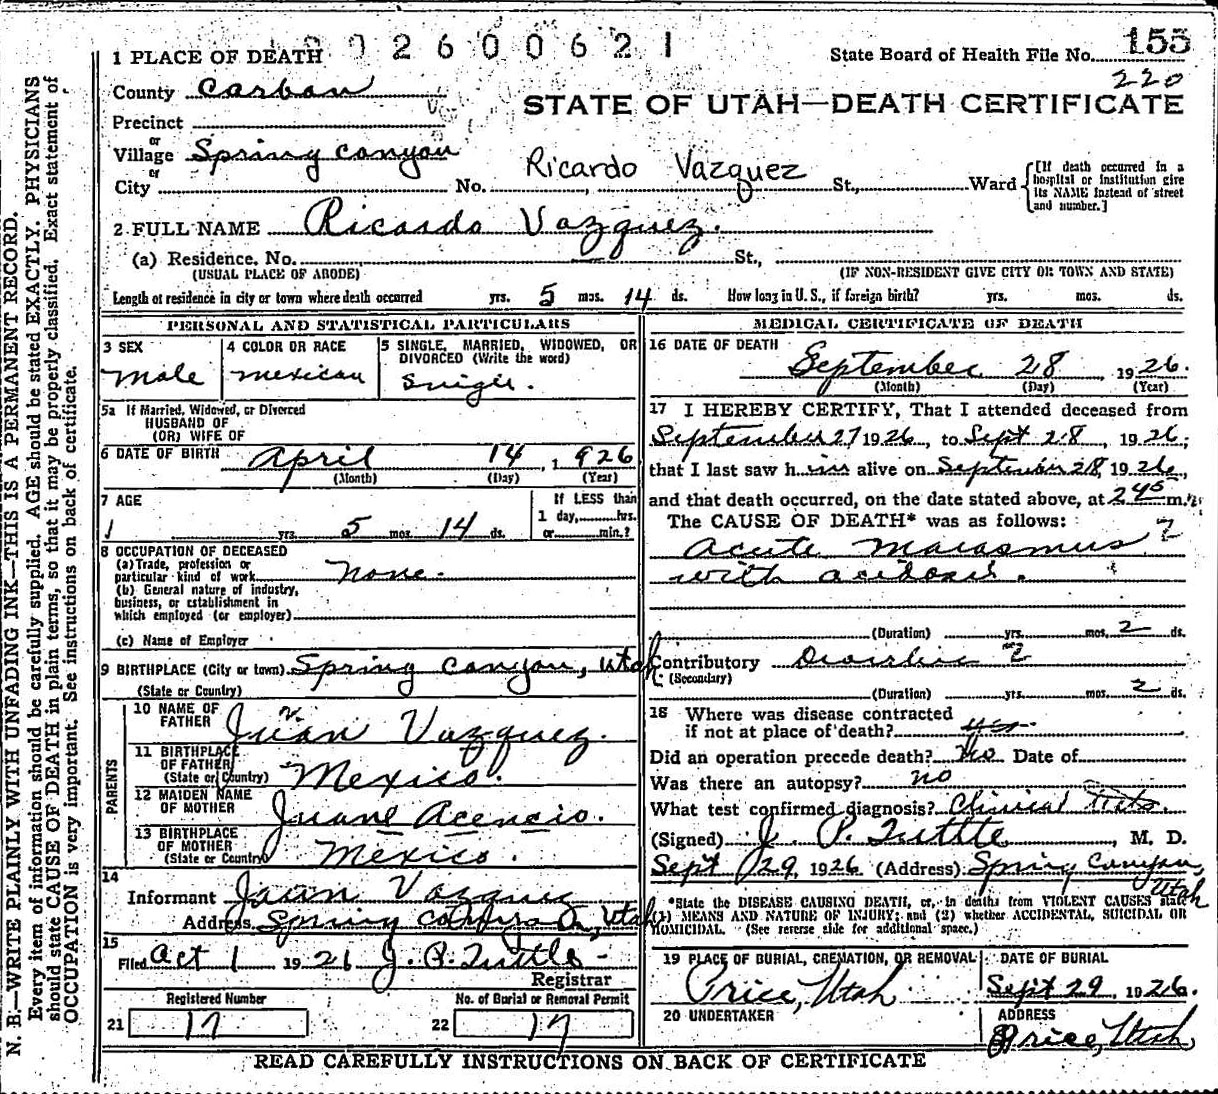 1902600621
1 PLACE OF DEATH
State Board of Health File No. 155
220
County Carbon
STATE OF UTAH—DEATH CERTIFICATE
Precinct
or
Village Spring Canyon
or
Ricardo Vazquez
City No. , St., Ward
[If death occurred in a hospital or institution give its NAME instead of street and number.]
2 FULL NAME Ricardo Vazquez.
(a) Residence, No. St.,
(USUAL PLACE OF ABODE) (IF NON-RESIDENT GIVE CITY OR TOWN AND STATE)
Length of residence in city or town where death occurred yrs. 5 mos. 14 ds. How long in U. S., if foreign birth? yrs. mos. ds.
PERSONAL AND STATISTICAL PARTICULARS
3 SEX
Male
4 COLOR OR RACE
Mexican
5 SINGLE, MARRIED, WIDOWED, OR
DIVORCED (Write the word)
Single.
5a If Married, Widowed, or Divorced
HUSBAND OF
(OR) WIFE OF
6 DATE OF BIRTH April 14, 1926
(Month) (Day) (Year)
7 AGE
yrs. 5 mos. 14 ds.
If LESS than
1 day, hrs.
or min.?
8 OCCUPATION OF DECEASED
(a) Trade, profession or
particular kind of work None.
(b) General nature of industry,
business, or establishment in
which employed (or employer)
(c) Name of Employer
9 BIRTHPLACE (City or town) Spring Canyon, Utah
(State or Country)
PARENTS
10 NAME OF
FATHER Juan Vazquez.
11 BIRTHPLACE
OF FATHER
(State or Country) Mexico.
12 MAIDEN NAME
OF MOTHER Juane Acencio.
13 BIRTHPLACE
OF MOTHER
(State or Country) Mexico.
14
Informant Juan Vazquez
Address Spring Canyon, Utah
15
Filed Oct 1 1926 J. P. Tuttle
Registrar
Registered Number No. of Burial or Removal Permit
21 17 22 17
MEDICAL CERTIFICATE OF DEATH
16 DATE OF DEATH
September 28, 1926.
(Month) (Day) (Year)
17 I HEREBY CERTIFY, That I attended deceased from
September 27 1926, to Sept 28, 1926;
that I last saw him alive on September 28, 1926,
and that death occurred, on the date stated above, at 245 m.
The CAUSE OF DEATH* was as follows:
Acute Marasmus ?
with acidosis.
(Duration) yrs. mos. 2 ds.
Contributory Diarrhea ?
(Secondary)
(Duration) yrs. mos. 2 ds.
18 Where was disease contracted
if not at place of death? yes
Did an operation precede death? No Date of
Was there an autopsy? no
What test confirmed diagnosis? Clinical Tests.
(Signed) J. P. Tuttle, M. D.
Sept 29, 1926. (Address) Spring Canyon,
Utah
*State the DISEASE CAUSING DEATH, or, in deaths from VIOLENT CAUSES state
(1) MEANS AND NATURE OF INJURY; and (2) whether ACCIDENTAL, SUICIDAL OR
HOMICIDAL. (See reverse side for additional space.)
19 PLACE OF BURIAL, CREMATION, OR REMOVAL
Price, Utah
DATE OF BURIAL
Sept 29, 1926.
20 UNDERTAKER
ADDRESS
Price, Utah
READ CAREFULLY INSTRUCTIONS ON BACK OF CERTIFICATE
N. B.—WRITE PLAINLY WITH UNFADING INK—THIS IS A PERMANENT RECORD.
Every item of information should be carefully supplied. AGE should be stated EXACTLY. PHYSICIANS
should state CAUSE OF DEATH in plain terms, so that it may be properly classified. Exact statement of
OCCUPATION is very important. See instructions on back of certificate.